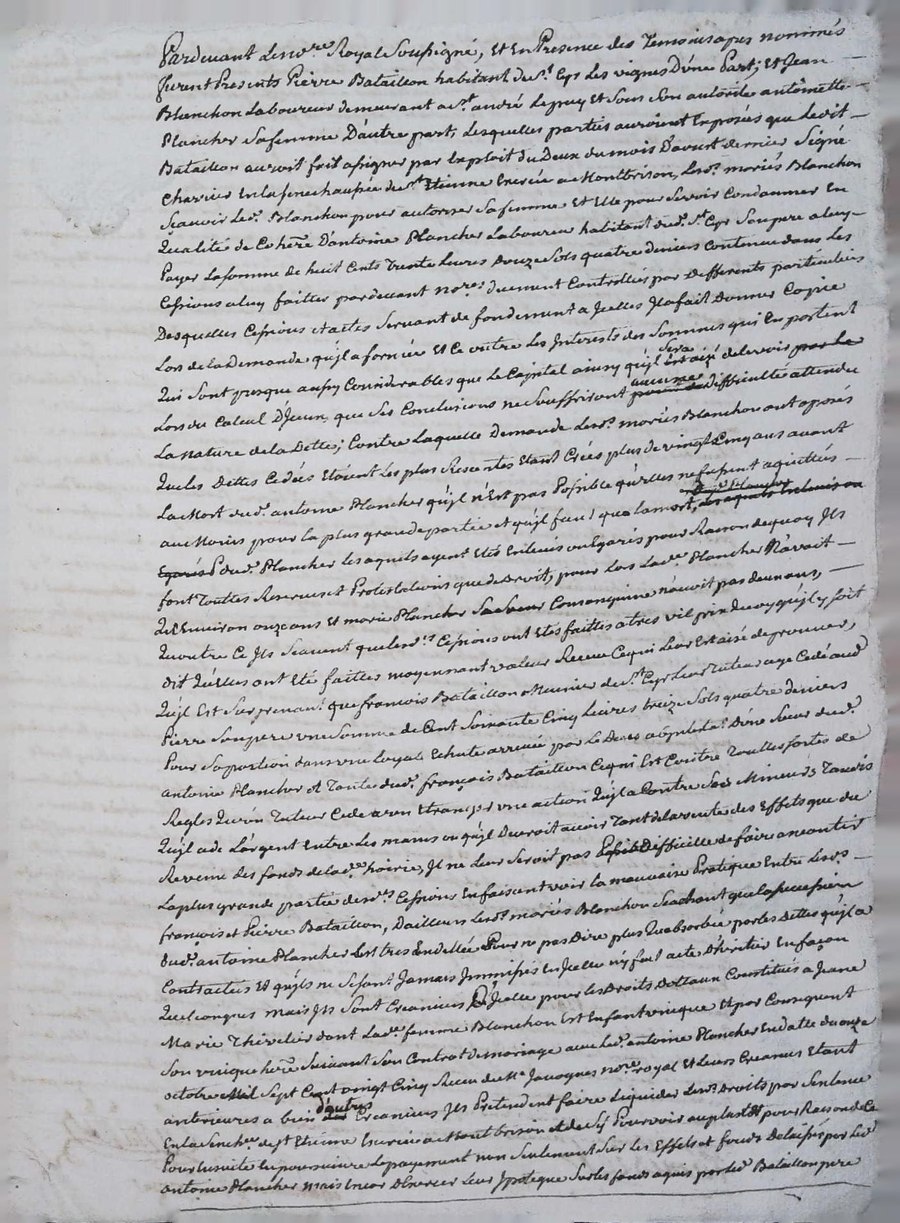 Pardevant Le no.re Royal Soussigné, Et En Presence des Temoins apes nommés
furent Presents Pierre Bataillon habitant de St. Cyr Les vignes D'une Part; Et Jean
Blanchon Laboureur demeurant a St. andré Le puy Et Sous Son autorité antoinette
Plancher Sa femme D'autre part, Lesquelles parties auroient Exposées que Ledit
Bataillon auroit fait asigner par Exploit du Deux du mois D'aoust dernier Signé
Charvier En la senechaussée de St. Etienne Exercée a Montbrison, Les d. mariés Blanchon
Scavoir Le d. Blanchon pour autoriser Sa femme Et Elle pour Se voir Condamner En
Qualité de Cohere. D'antoine Plancher Laboureur habitant du d. St. Cyr Son pere a luy
Payer La somme de huit Cents Trente Livres Douze Sols quatre deniers Contenue dans Les
Cessions a luy faittes pardevant nores. duement Controllées par Differents particuliers
Desquelles Cessions et actes Servant de fondement a Jcelles Jl a fait Donner Copie
Lors de la Demande qu'jl a formée Et Ce outre Les Interests des Sommes qui En portent
Qui Sont presque aussy Considerables que Le Capital ainsy qu'jl Sera aisé de le voir
Lors du Calcul D'Jceux, que Ses Conclusions ne Souffriront aucune difficultée attendu
La nature de la Dette; Contre Laquelle Demande Les d. mariés Blanchon ont oposés
Que les Dettes Cedées Etoient Les plus Recentes Etant Crées plus de vingt Cinq ans avant
La Mort du d. antoine Plancher qu'jl n'Est pas Possible qu'elles ne fussent aquittées
au Moins pour la plus grande partie et qu'jl faut qu'a la mort
du d. Plancher les aquits ayent Etés Enlevés ou Egarés pour Raison de quoy Jls
font Toutes Reserves et Protestations que de Droit, pour Lors La de. Plancher N'avoit
Qu'Environ onze ans Et marie Plancher Sa Soeur Consanguine n'avoit pas deux ans,
Qu'outre Ce Jls Scavent que les d.es Cessions ont Etés faittes a tres vil prix quoy qu'jl y soit
dit Qu'Elles ont Eté faittes moyennant valeur Receue Ce qui Leur Est aisé de prouver,
Qu'jl Est Surprenant que françois Bataillon Meunier de St. Cyr Leur Tuteur aye Cedé au d.
Pierre Son pere une Somme de Cent Soixante Cinq Livres treize Sols quatre deniers
Pour Sa portion dans une Loyale Echute arrivée par le Deces D'une Soeur du d.
antoine Plancher et Tante du d. françois Bataillon Ce qui Est Contre Touttes sortes de
Regles Qu'un Tuteur Cede a un Etranger une action Qu'jl a Contre Ses Mineurs Tandis
Qu'jl a de L'argent Entre Les mains ou qu'jl Devroit avoir Tant de la vente des Effets que du
Revenu des fonds de la de. hoirie, Jl ne Leur Seroit pas Difficille de faire aneantir
La plus grande partie des d.es Cessions En faisant voir la mauvaise Pratique Entre Les d.
françois et Pierre Bataillon, D'ailleurs Les d. mariés Blanchon Scachant que la succession
du d. antoine Plancher Est tres Endettée Pour ne pas Dire plus Qu'absorbée par les Dettes qu'jl a
Contractés Et qu'jls ne Se sont Jamais Jmmissés En Jcelle ny fait acte D'heritier En façon
Quelconques mais Jls Sont Creanciers D'Jcelle pour les Droits Dottaux Constitués a Jeane
Marie Thivelier dont La de. femme Blanchon Est Enfant unique Et par Consequent
Son unique here. Suivant Son Contrat de mariage avec Le d. antoine Plancher En datte du onze
octobre Mil Sept Cent vingt Cinq Receu de Me. Javogues no.re royal Et Leurs Creances Etant
anterieures a bien d'autres Creanciers Jls Pretendent faire Liquider Les d. Droits par Sentence
En la Senchee. de St. Etienne Exercée a Montbrison et de S'y Pourvoir au plus tôt pour Raison de Ce
Pour Ensuite En poursuivre Le payement non Seulement Sur Les Effets et fonds Delaissés par Le d.
antoine Plancher mais Encor D'Exercer Leur Jpoteque Sur les fonds aquis par le d. Bataillon pere